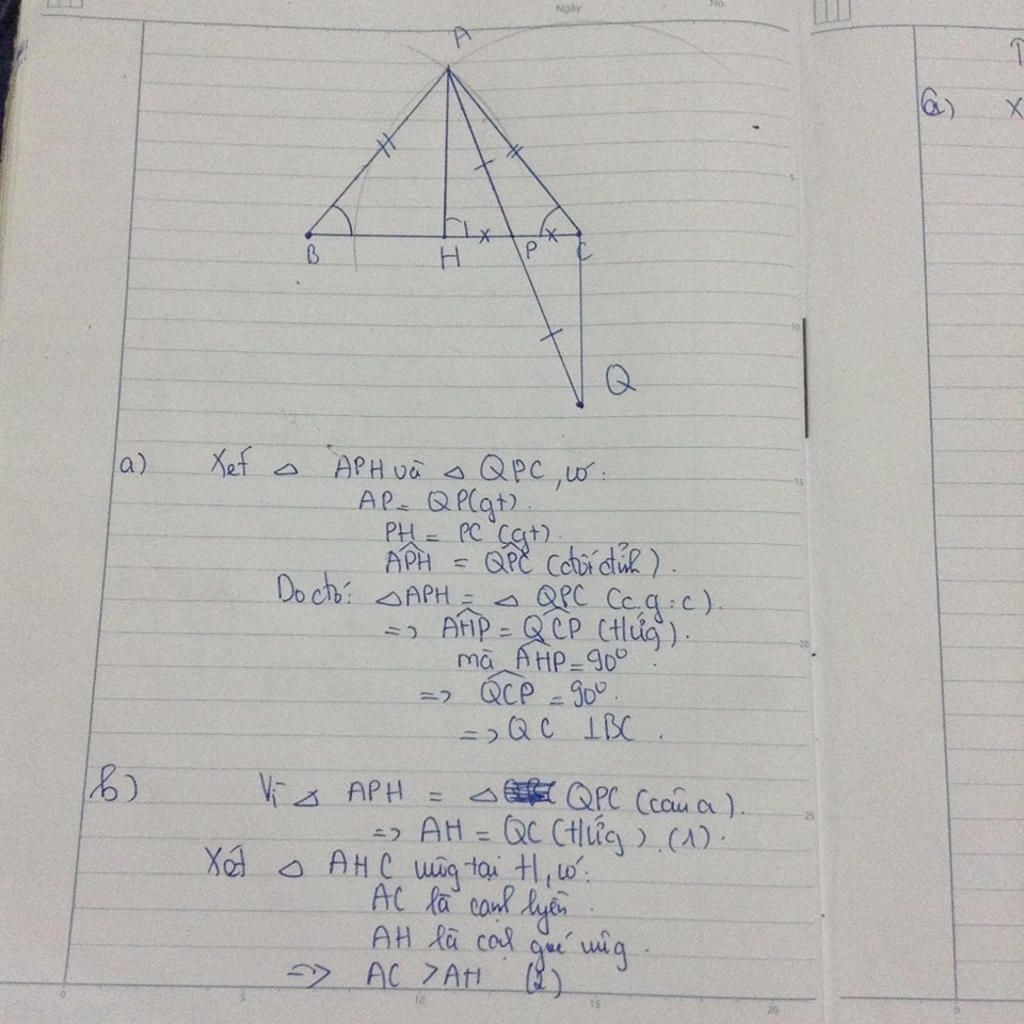 Ngày
No.
A
B
H
P
C
Q
a) Xét △ APH và △ QPC, có:
AP = QP (gt).
PH = PC (gt).
APH = QPC (đối đỉnh).
Do đó: △APH = △ QPC (c.g.c).
=> AHP = QCP (tứ).
mà AHP = 90°.
=> QCP = 90°.
=> QC ⊥ BC.
b) Vì △ APH = △ QPC (câu a).
=> AH = QC (tứ). (1).
Xét △ AHC vuông tại H, có:
AC là cạnh huyền.
AH là cạnh góc vuông.
=> AC > AH (2)
a) X
5
10
15
20
25
0
5
10
15
20
0